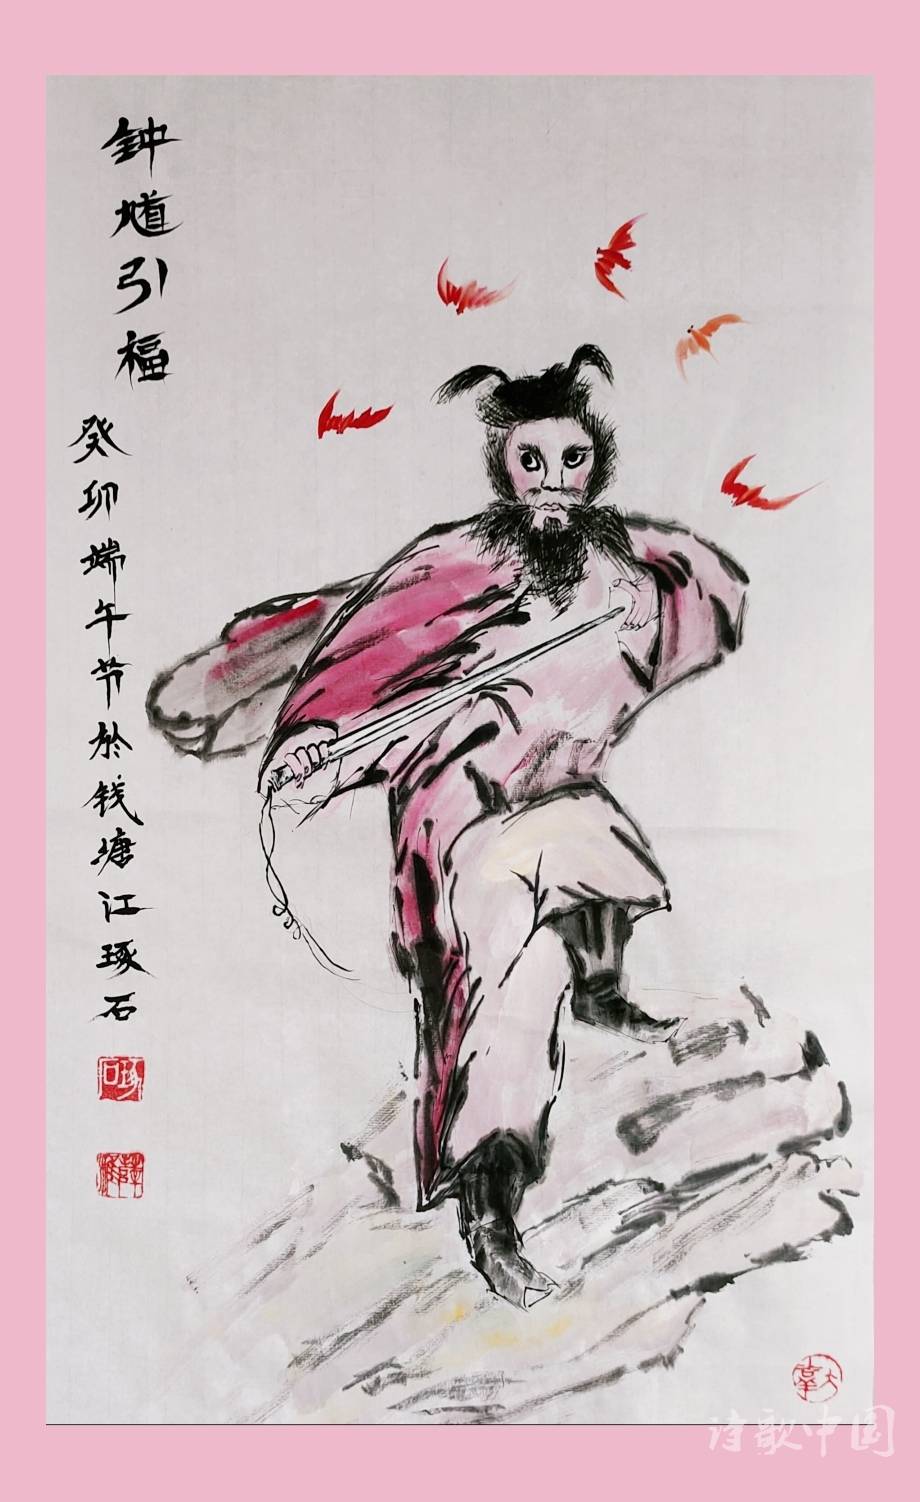 钟馗引福
癸卯端午节於钱塘江琢石
琢石
诗歌中国